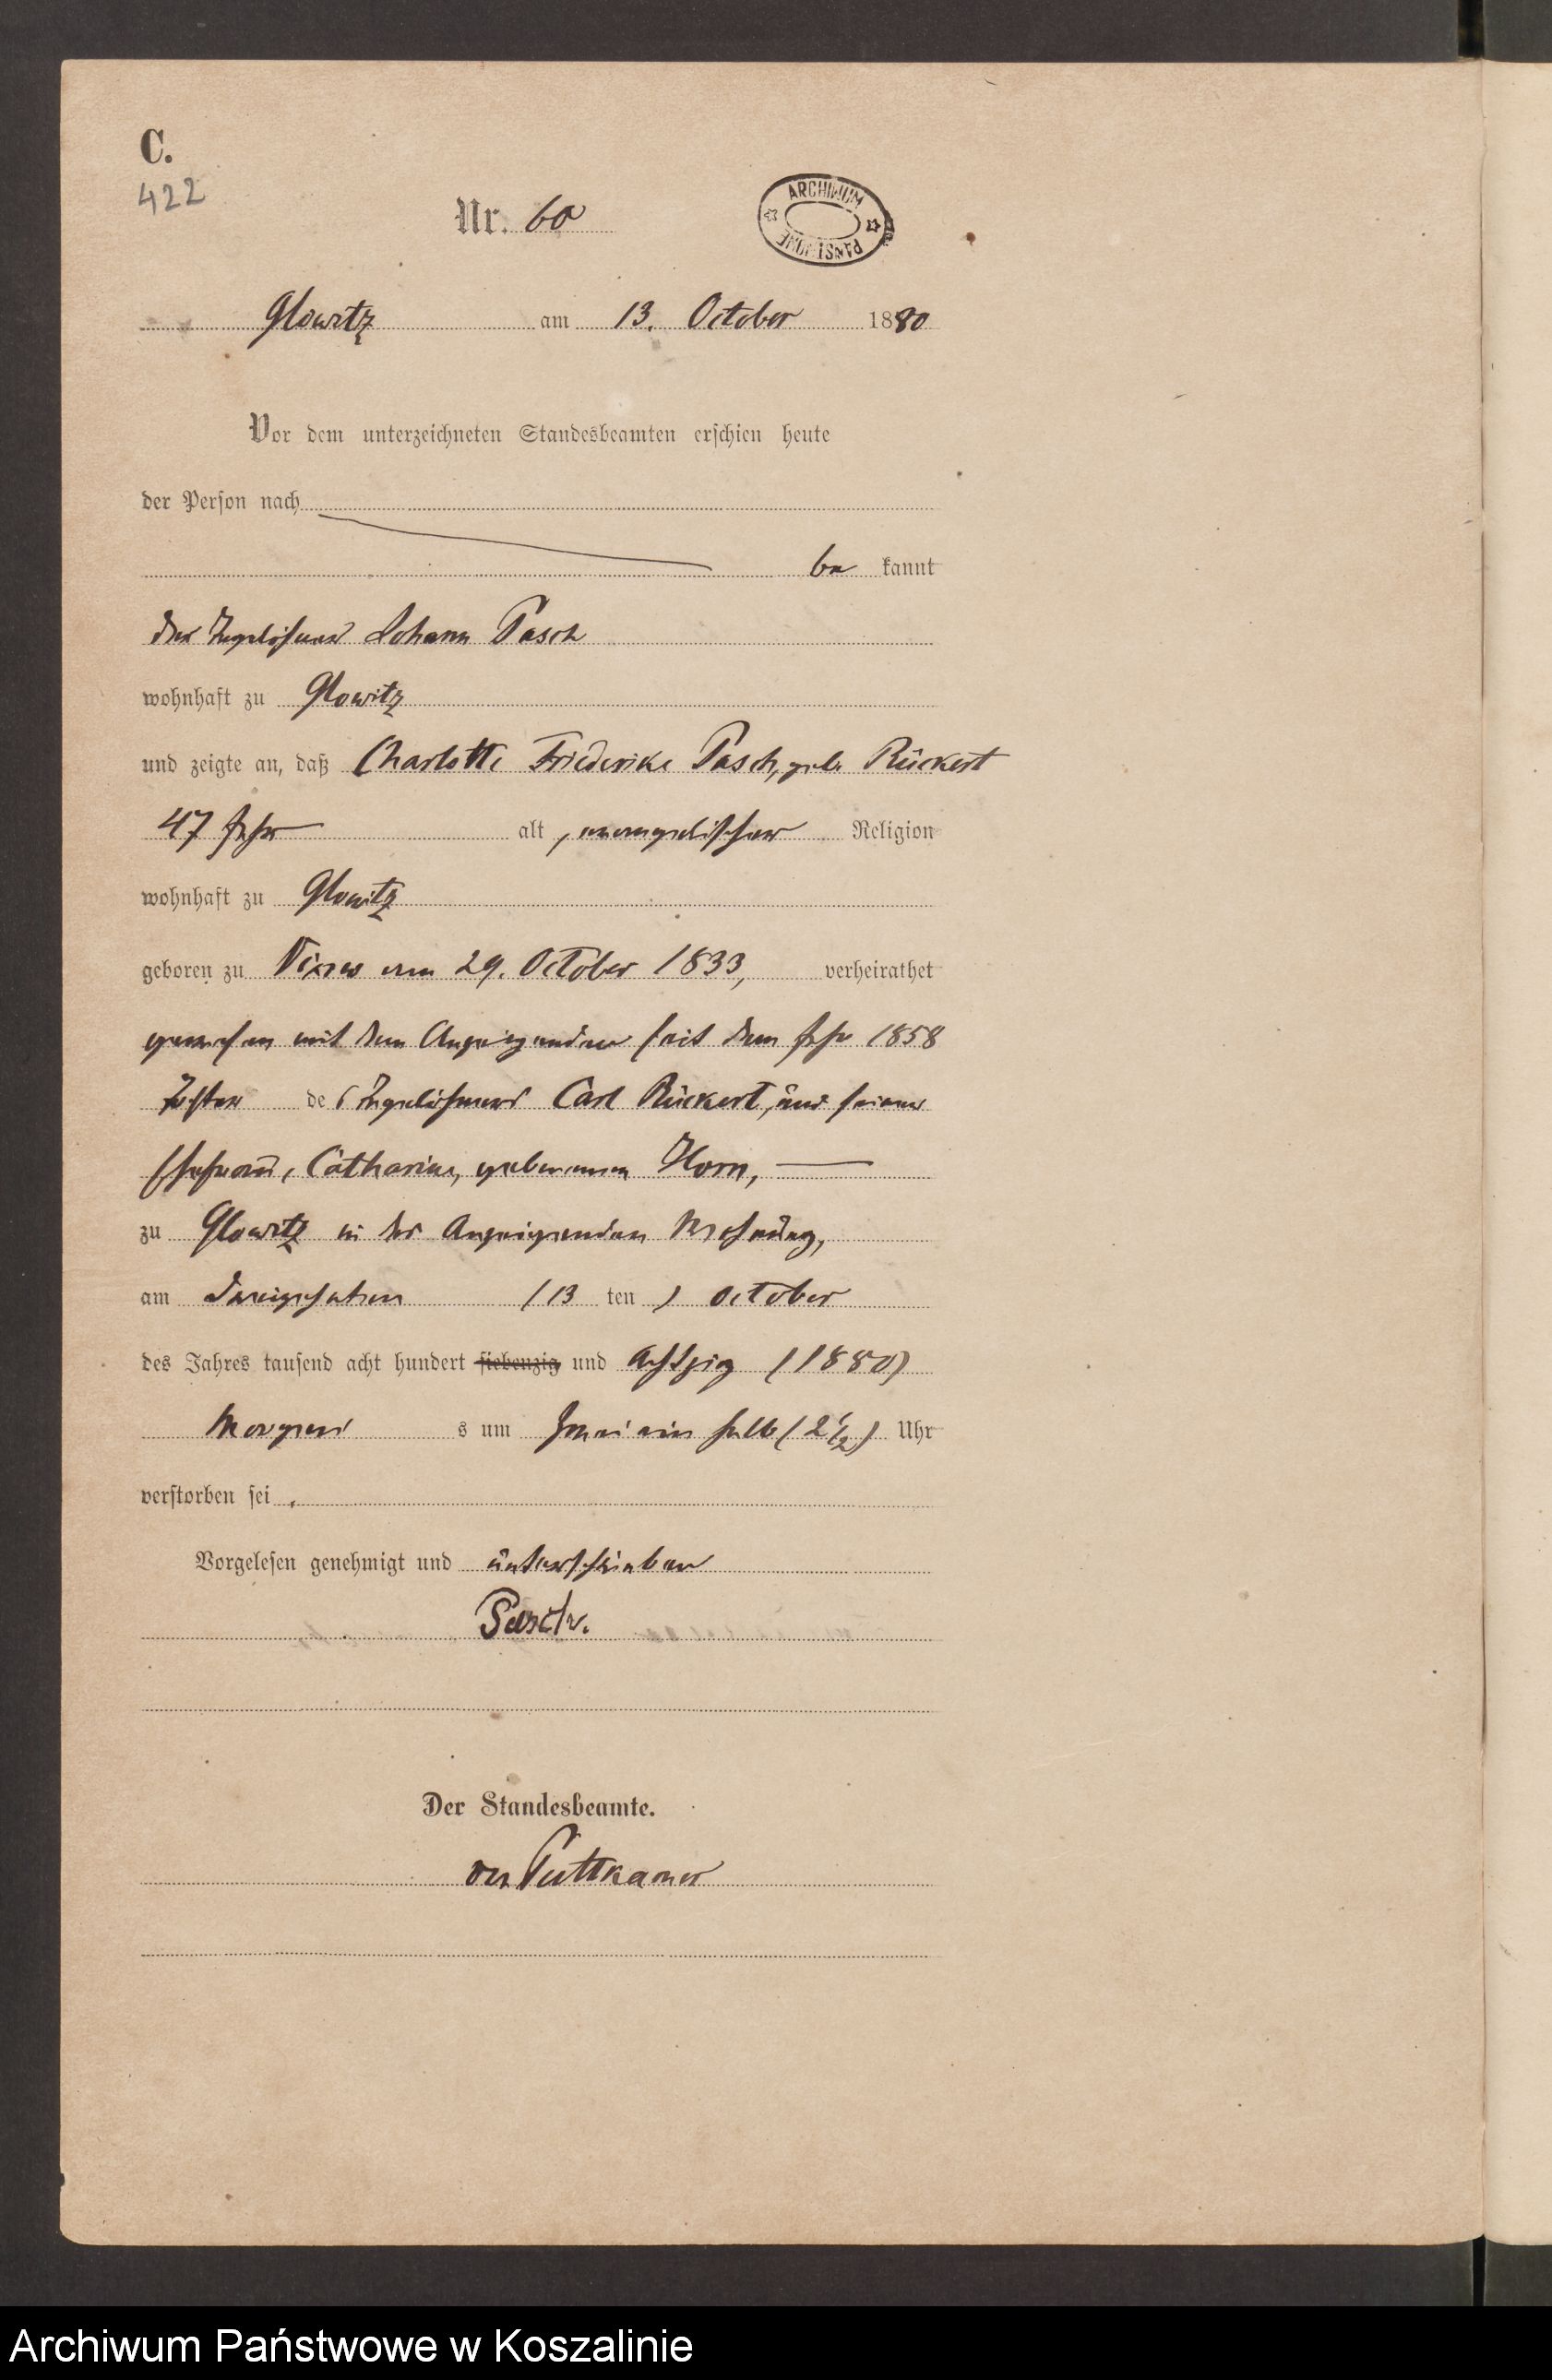 C.
422
Nr. 60
ARCHIWUM PAŃSTWOWE
Glowitz am 13. October 1880
Vor dem unterzeichneten Standesbeamten erschien heute
der Person nach
be kannt
der Tagelöhner Johann Pasch
wohnhaft zu Glowitz
und zeigte an, daß Charlotte Friederike Pasch, geb. Rückert
47 Jahr alt, evangelischer Religion
wohnhaft zu Glowitz
geboren zu Vixow am 29. October 1833, verheirathet
gewesen mit dem Anzeigenden seit dem Jahr 1858
Tochter des Tagelöhners Carl Rückert, und seiner
Ehefrau, Catharine, geborenen Horn,
zu Glowitz in des Anzeigenden Wohnung,
am dreizehnten (13 ten) October
des Jahres tausend acht hundert siebenzig und achtzig (1880)
Morgens um zwei ein halb (2 1/2) Uhr
verstorben sei.
Vorgelesen genehmigt und unterschrieben
Pasch.
Der Standesbeamte.
von Puttkamer
Archiwum Państwowe w Koszalinie